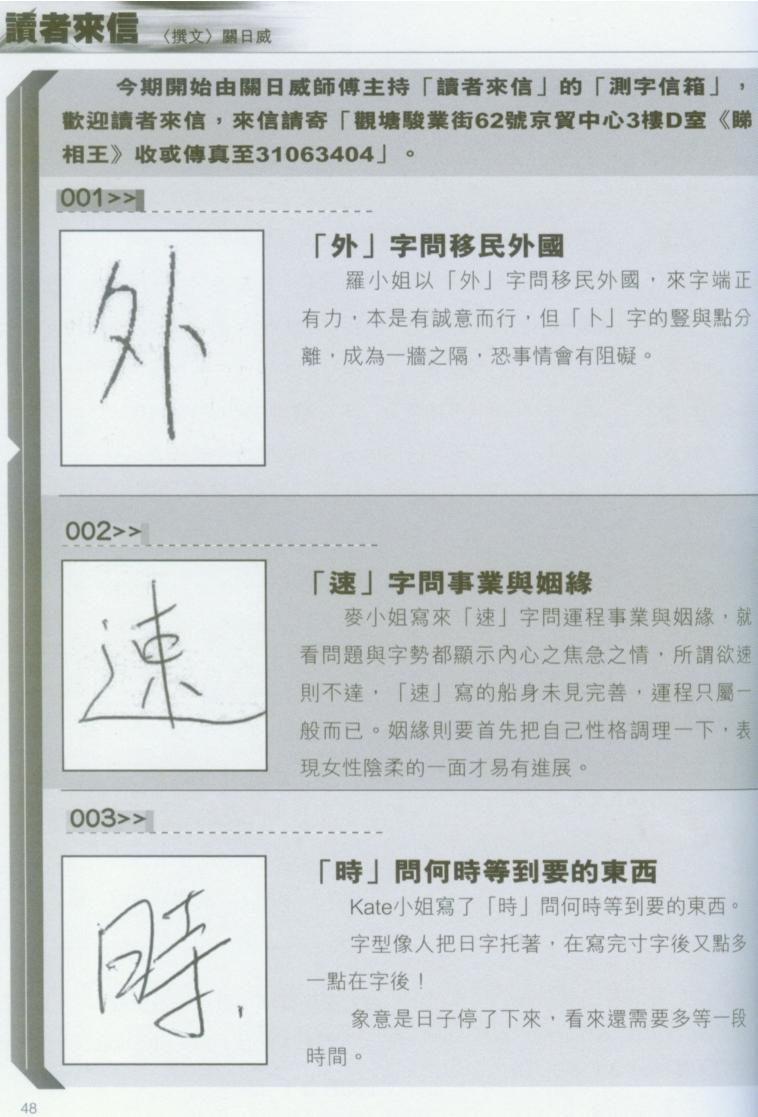 讀者來信 〈撰文〉關日威
今期開始由關日威師傅主持「讀者來信」的「測字信箱」，
歡迎讀者來信，來信請寄「觀塘駿業街62號京貿中心3樓D室《睇
相王》收或傳真至31063404」。
001>>
外
「外」字問移民外國
羅小姐以「外」字問移民外國，來字端正
有力，本是有誠意而行，但「卜」字的豎與點分
離，成為一牆之隔，恐事情會有阻礙。
002>>
速
「速」字問事業與姻緣
麥小姐寫來「速」字問運程事業與姻緣，就
看問題與字勢都顯示內心之焦急之情，所謂欲速
則不達，「速」寫的船身未見完善，運程只屬一
般而已。姻緣則要首先把自己性格調理一下，表
現女性陰柔的一面才易有進展。
003>>
時
「時」問何時等到要的東西
Kate小姐寫了「時」問何時等到要的東西。
字型像人把日字托著，在寫完寸字後又點多
一點在字後！
象意是日子停了下來，看來還需要多等一段
時間。
48